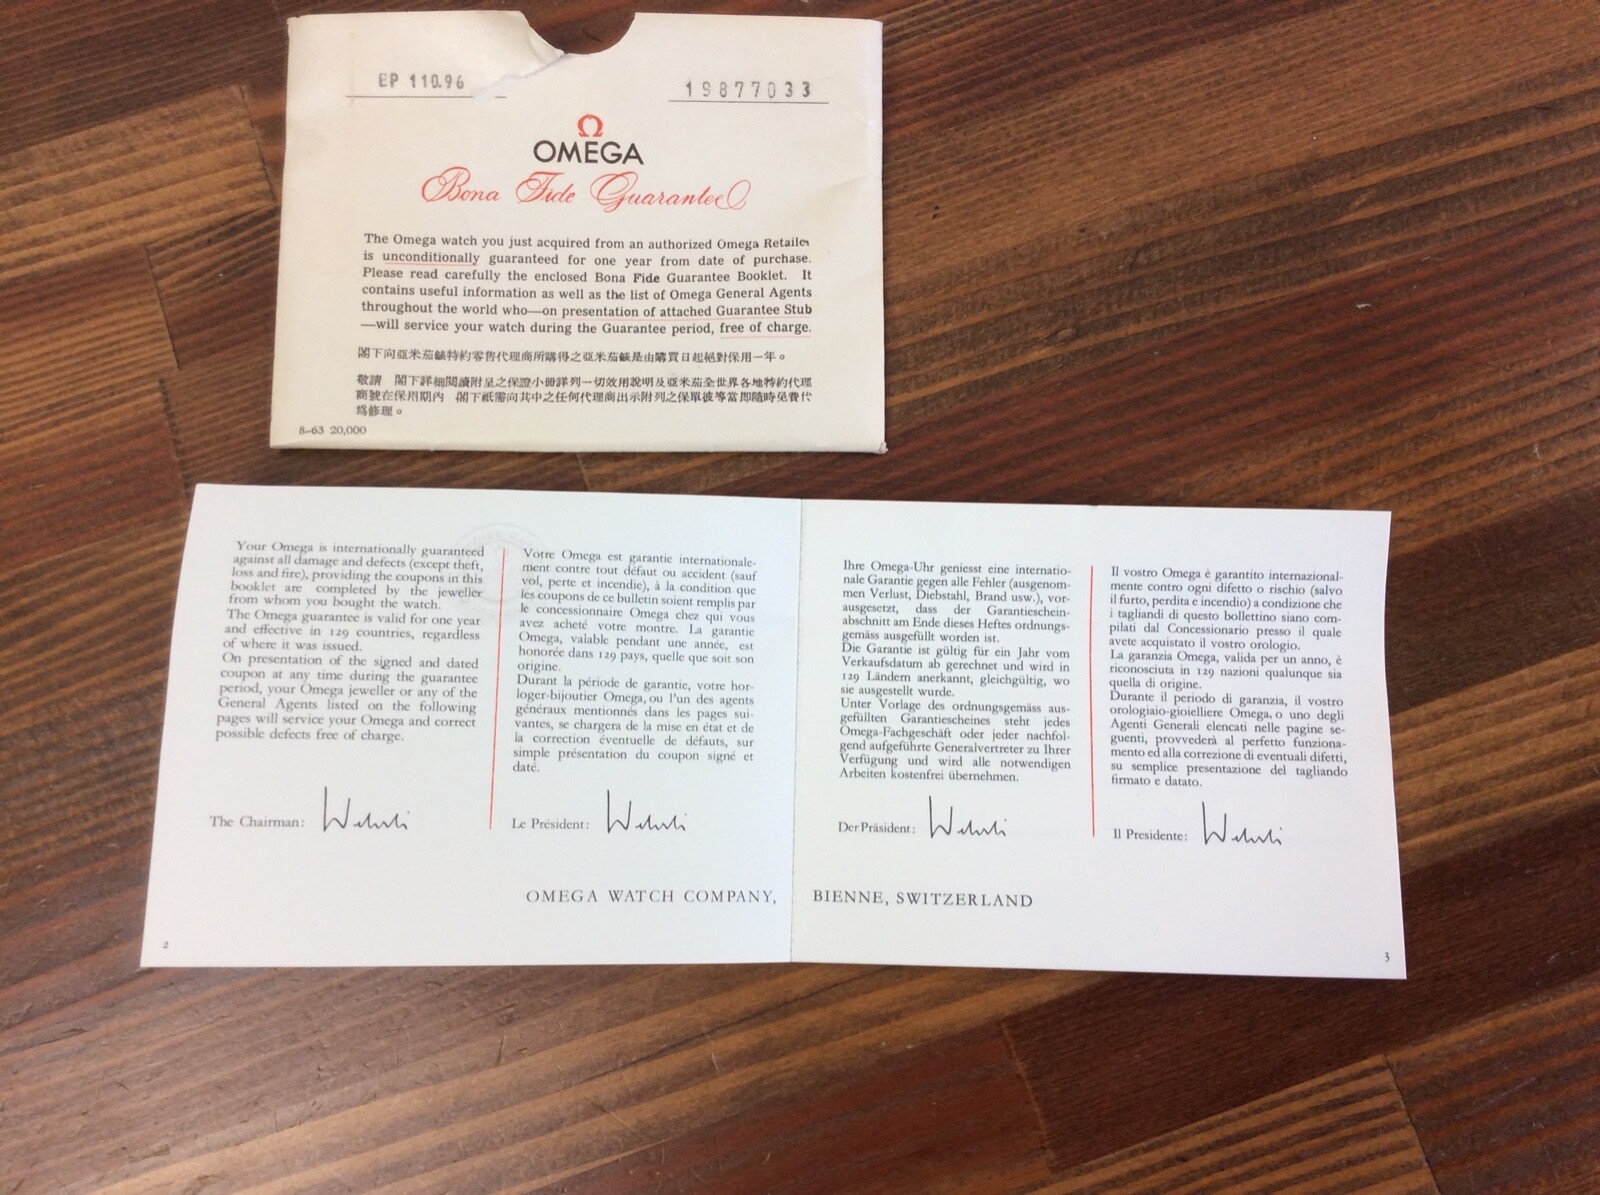 EP 110.96
19877033
Ω
OMEGA
Bona Fide Guarantee
The Omega watch you just acquired from an authorized Omega Retailer
is unconditionally guaranteed for one year from date of purchase.
Please read carefully the enclosed Bona Fide Guarantee Booklet. It
contains useful information as well as the list of Omega General Agents
throughout the world who—on presentation of attached Guarantee Stub
—will service your watch during the Guarantee period, free of charge.
閣下向亞米茄錶特約零售代理商所購得之亞米茄錶是由購買日起絕對保用一年。
敬請 閣下詳細閱讀附呈之保證小冊詳列一切效用說明及亞米茄全世界各地特約代理
商號在保用期內 閣下祇需向其中之任何代理商出示附列之保單彼等當即隨時免費代
為修理。
8-63 20,000
Your Omega is internationally guaranteed
against all damage and defects (except theft,
loss and fire), providing the coupons in this
booklet are completed by the jeweller
from whom you bought the watch.
The Omega guarantee is valid for one year
and effective in 129 countries, regardless
of where it was issued.
On presentation of the signed and dated
coupon at any time during the guarantee
period, your Omega jeweller or any of the
General Agents listed on the following
pages will service your Omega and correct
possible defects free of charge.
The Chairman:
Votre Omega est garantie internationale-
ment contre tout défaut ou accident (sauf
vol, perte et incendie), à la condition que
les coupons de ce bulletin soient remplis par
le concessionnaire Omega chez qui vous
avez acheté votre montre. La garantie
Omega, valable pendant une année, est
honorée dans 129 pays, quelle que soit son
origine.
Durant la période de garantie, votre hor-
loger-bijoutier Omega, ou l'un des agents
généraux mentionnés dans les pages sui-
vantes, se chargera de la mise en état et de
la correction éventuelle de défauts, sur
simple présentation du coupon signé et
daté.
Le Président:
OMEGA WATCH COMPANY,
2
Ihre Omega-Uhr geniesst eine internatio-
nale Garantie gegen alle Fehler (ausgenom-
men Verlust, Diebstahl, Brand usw.), vor-
ausgesetzt, dass der Garantieschein-
abschnitt am Ende dieses Heftes ordnungs-
gemäss ausgefüllt worden ist.
Die Garantie ist gültig für ein Jahr vom
Verkaufsdatum ab gerechnet und wird in
129 Ländern anerkannt, gleichgültig, wo
sie ausgestellt wurde.
Unter Vorlage des ordnungsgemäss aus-
gefüllten Garantiescheines steht jedes
Omega-Fachgeschäft oder jeder nachfol-
gend aufgeführte Generalvertreter zu Ihrer
Verfügung und wird alle notwendigen
Arbeiten kostenfrei übernehmen.
Der Präsident:
Il vostro Omega è garantito internazional-
mente contro ogni difetto o rischio (salvo
il furto, perdita e incendio) a condizione che
i tagliandi di questo bollettino siano com-
pilati dal Concessionario presso il quale
avete acquistato il vostro orologio.
La garanzia Omega, valida per un anno, è
riconosciuta in 129 nazioni qualunque sia
quella di origine.
Durante il periodo di garanzia, il vostro
orologiaio-gioielliere Omega, o uno degli
Agenti Generali elencati nelle pagine se-
guenti, provvederà al perfetto funziona-
mento ed alla correzione di eventuali difetti,
su semplice presentazione del tagliando
firmato e datato.
Il Presidente:
BIENNE, SWITZERLAND
3